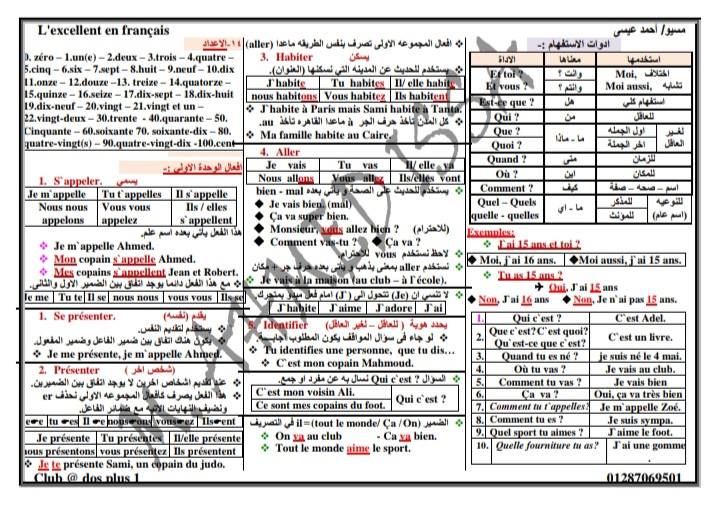 L'excellent en français
مسيو/ أحمد عيسى
١٤-الأعداد
0. zéro – 1.un(e) – 2.deux – 3.trois – 4.quatre –
5.cinq – 6.six – 7.sept – 8.huit – 9.neuf – 10.dix
11.onze – 12.douze – 13. treize – 14.quatorze –
15.quinze – 16.seize – 17.dix-sept – 18.dix-huit
19.dix-neuf – 20.vingt – 21.vingt et un –
22.vingt-deux – 30.trente - 40.quarante – 50.
Cinquante – 60.soixante 70. soixante-dix – 80.
quatre-vingt(s) – 90.quatre-vingt-dix -100.cent
افعال الوحدة الاولي :-
1. S`appeler. يسمي
Je m`appelle Tu t`appelles Il s`appelle
Nous nous appelons Vous vous appelez Ils / elles s`appellent
هذا الفعل يأتي بعده اسم علم.
Je m`appelle Ahmed.
Mon copain s`appelle Ahmed.
Mes copains s`appellent Jean et Robert.
مع هذا الفعل دائما يوجد اتفاق بين الضمير الاول والثاني.
Je me Tu te Il se nous nous vous vous Ils se
1. Se présenter. يقدم (نفسه)
يستخدم لتقديم النفس.
يكون هناك اتفاق بين ضمير الفاعل وضمير المفعول.
Je me présente, je m`appelle Ahmed.
2. Présenter (شخص اخر)
عند تقديم اشخاص اخرين لا يوجد اتفاق بين الضميرين.
هذا الفعل يصرف كأفعال المجموعه الاولي نحذف er
ونضيف النهايات الاتيه مع ضمائر الفاعل.
Je présente Tu présentes Il/elle présente
nous présentons vous présentez Ils présentent
Je te présente Sami, un copain du judo.
Club @ dos plus 1
افعال المجموعه الاولى تصرف بنفس الطريقه ماعدا (aller)
3. Habiter يسكن
يستخدم للحديث عن المدينه التي نسكنها (العنوان).
J`habite Tu habites Il/ elle habite
nous habitons Vous habitez Ils habitent
J`habite à Paris mais Sami habite à Tanta.
كل المدن تأخذ حرف الجر à ماعدا القاهره تأخذ au.
Ma famille habite au Caire.
4. Aller
Je vais Tu vas Il/ elle va
Nous allons Vous allez Ils/elles vont
يستخدم للحديث علي الصحة و يأتي بعده bien - mal
Je vais bien. (mal)
Ça va super bien.
Monsieur, vous allez bien ? (للاحترام)
Comment vas-tu ? Ça va ?
لاحظ نستخدم vous للاحترام.
نستخدم aller بمعني يذهب و يأتي بعده حرف جر + مكان
Je vais à la maison (au club – à l`école).
لا تنسي ان (Je) تتحول الي (J`) امام فعل مبدوء بمتحرك.
J`habite J`aime J`adore J`ai
5. Identifier يحدد هوية ( للعاقل – لغير العاقل)
لو جاء في سؤال المواقف يكون المطلوب أجابـــة.
Tu identifies une personne, que tu dis…
C`est mon copain Mahmoud.
السؤال Qui c`est ? نسال به عن مفرد او جمع.
C`est mon voisin Ali.
Ce sont mes copains du foot.
Qui c`est ?
الضمير il=(tout le monde/ Ça /On) في التصريف
On va au club - Ca va bien.
Tout le monde aime le sport.
ادوات الاستفهام :-
الاداة معناها استخدمها
Et toi ? وانت ؟ Moi, اختلاف
Et vous ? وانتم ؟ Moi aussi, تشابه
Est-ce que ? هل استفهام كلي
Qui ? من للعاقل
Que ? ما - ماذا اول الجمله لغير العاقل
Quoi ? اخر الجملة
Quand ? متى للزمان
Où ? اين للمكان
Comment ? كيف اسم – صحه – صفة
Quel – Quels ما - اي للمذكر للتوعيه
quelle - quelles للمؤنث (اسم عام)
Exemples:
J`ai 15 ans et toi ?
Moi, j`ai 16 ans. Moi aussi, j`ai 15 ans.
Tu as 15 ans ?
Oui, J`ai 15 ans
Non, J`ai 16 ans Non, Je n`ai pas 15 ans.
1. Qui c`est ? C`est Adel.
2. Que c`est? C`est quoi? Qu`est-ce que c`est? C`est un livre.
3. Quand tu es né ? je suis né le 4 mai.
4. Où tu vas ? Je vais au club.
5. Comment tu vas ? Je vais bien
6. Ça va ? Oui, ça va très bien
7. Comment tu t`appelles? Je m`appelle Zoé.
8. Comment tu es ? Je suis sympa.
9. Quel sport tu aimes ? J`aime le foot.
10. Quelle fourniture tu as? J`ai une gomme .
01287069501
M / AHMED ISSA